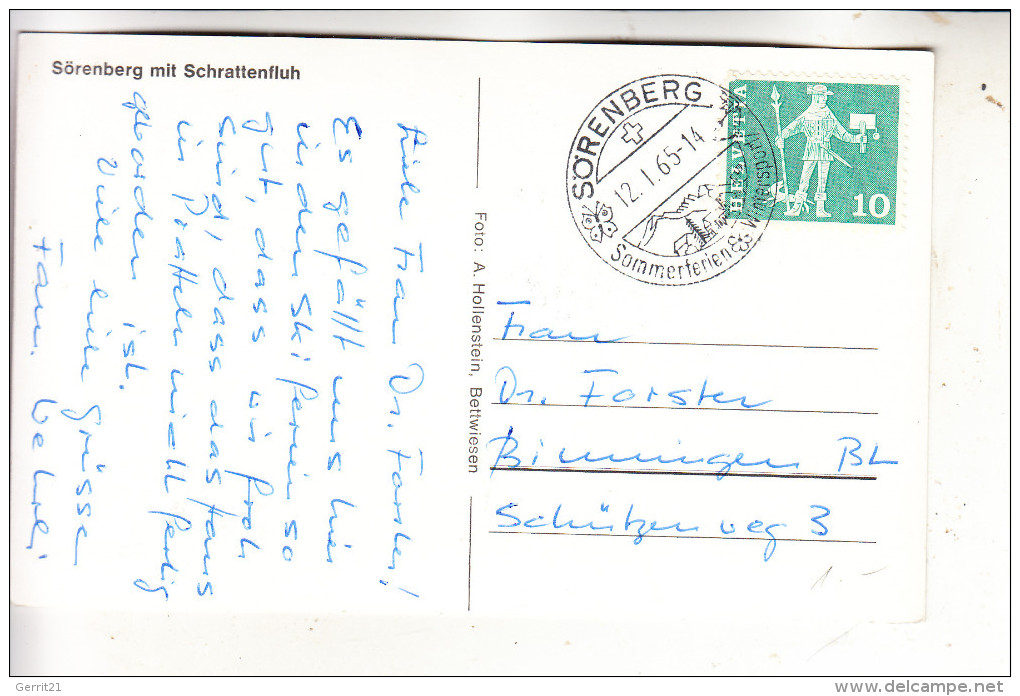 Sörenberg mit Schrattenfluh
Liebe Frau Dr. Forster!
Es gefällt uns hier
in den Skiferien so
gut, dass wir froh
sind, dass das Haus
in Pratteln nicht fertig
geworden ist.
Viele liebe Grüsse
Fam. Wehrli
Foto: A. Hollenstein, Bettwiesen
SÖRENBERG
12.1.65-14
Sommerferien
Wintersport
HELVETIA
10
Frau
Dr. Forster
Binningen BL
Schützenweg 3
1.-
Gerrit21
delcampe.net